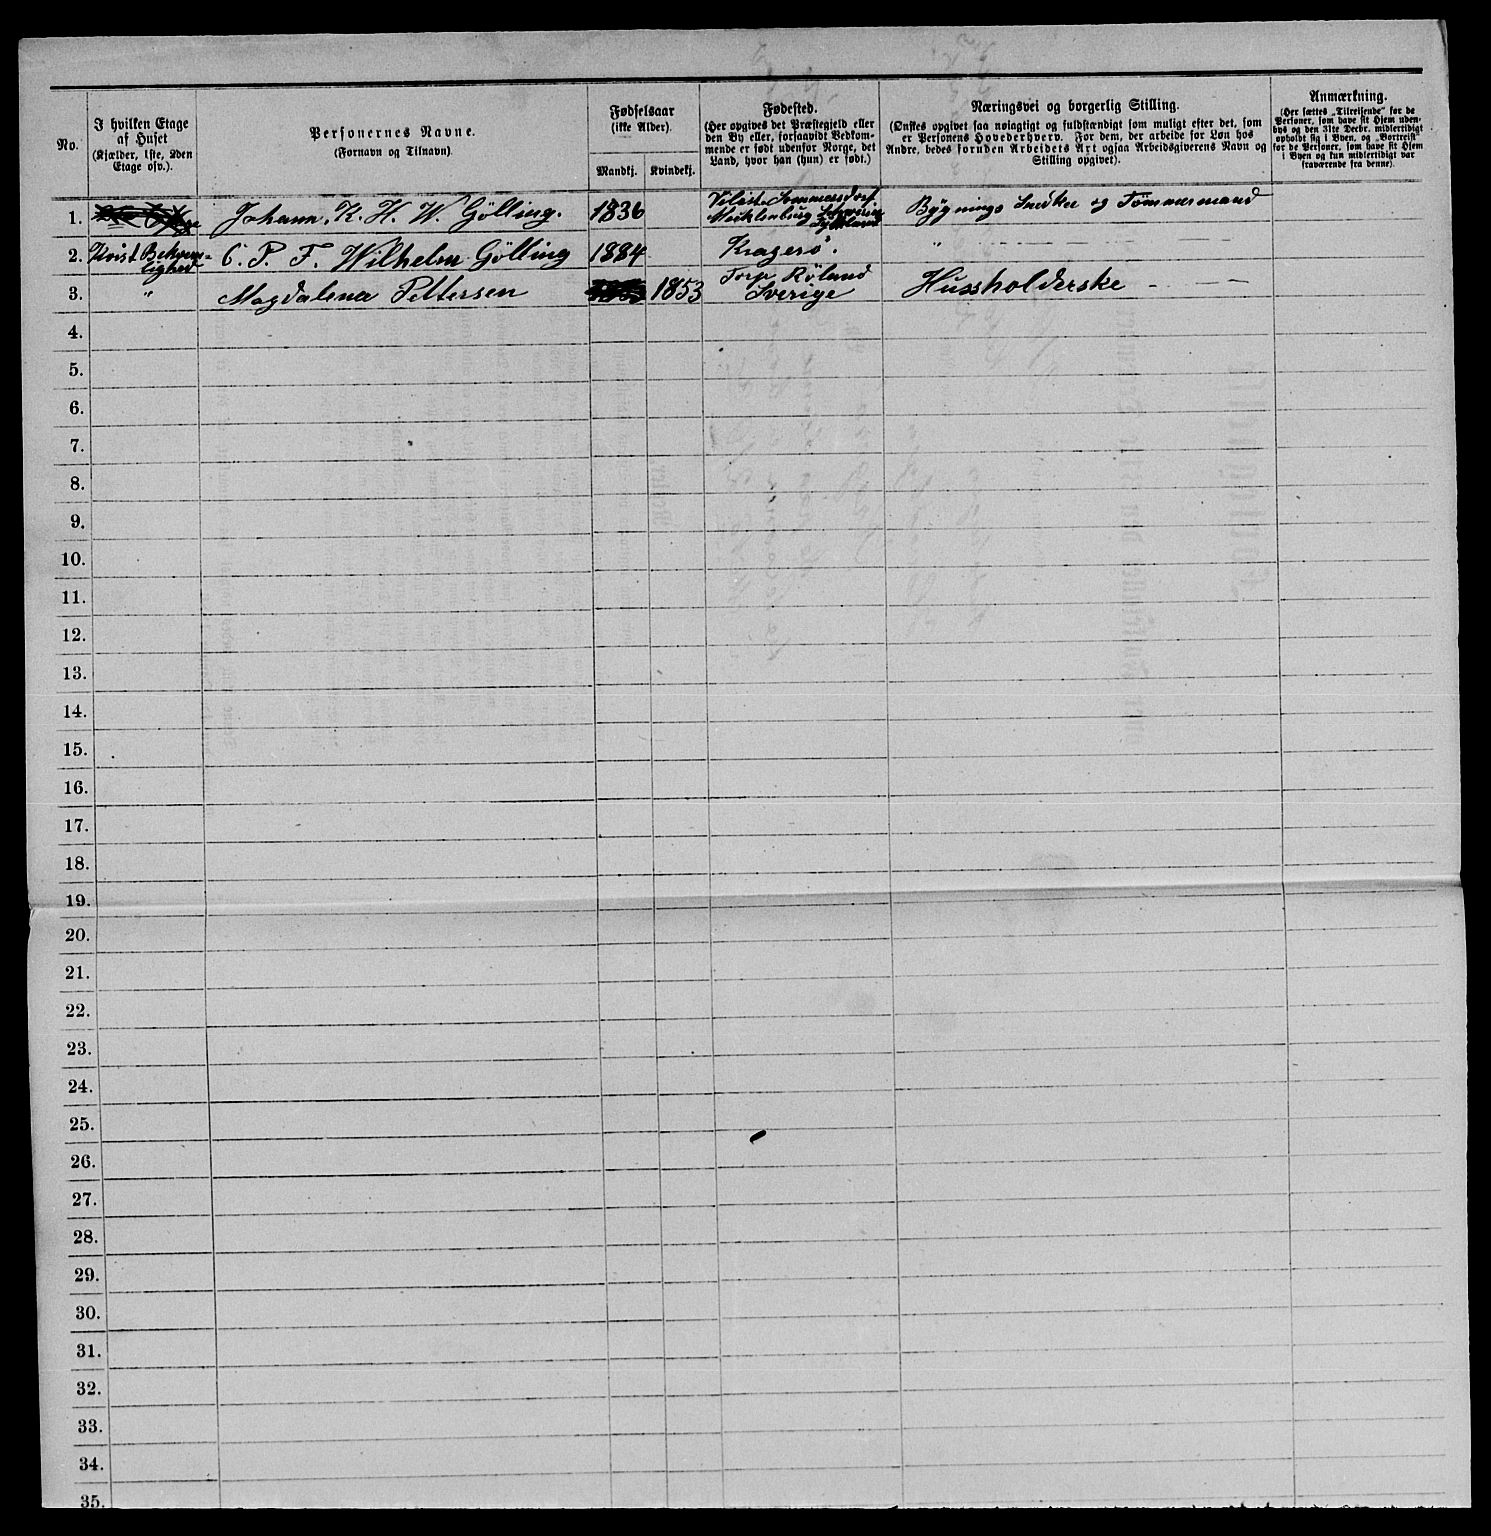 No.
I hvilken Etage
af Huset
(Kjælder, 1ste, 2den
Etage osv.).
Personernes Navne.
(Fornavn og Tilnavn).
Fødselsaar
(ikke Alder).
Mandkj. Kvindekj.
Fødested.
(Her opgives det Præstegjeld eller
den By eller, forsaavidt Vedkom-
mende er født udenfor Norge, det
Land, hvor han (hun) er født.)
Næringsvei og borgerlig Stilling.
(Ønskes opgivet saa nøiagtigt og fuldstændigt som muligt efter det, som
er Personens Hovederhverv. For dem, der arbeide for Løn hos
Andre, bedes foruden Arbeidets Art ogsaa Arbeidsgiverens Navn og
Stilling opgivet).
Anmærkning.
(Her sættes „Tilreisende" for de
Personer, som have sit Hjem uden-
bys og den 31te Decbr. midlertidigt
opholdt sig i Byen, og „Bortreist"
for de Personer, som have sit Hjem
i Byen og kun midlertidigt var
fraværende fra denne).
1. Johann. K. H. W. Gölling. 1836 Sommersdorf. Mecklenburg Schwerin Tyskland Bygnings Snedker og Tömmermand
2. Kvist Bekvem-
lighed C. P. F. Wilhelm Gölling 1884 Kragerö. "
3. " Magdalena Pettersen 1853 Torp Röland
Sverige Hussholderske
4.
5.
6.
7.
8.
9.
10.
11.
12.
13.
14.
15.
16.
17.
18.
19.
20.
21.
22.
23.
24.
25.
26.
27.
28.
29.
30.
31.
32.
33.
34.
35.